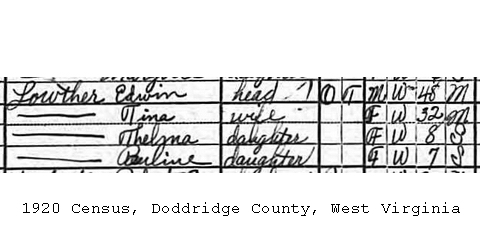 Lowther Edwin head 1 O F M W 48 M
Tina wife F W 32 M
Thelma daughter F W 8 S
Pauline daughter F W 7 S
1920 Census, Doddridge County, West Virginia